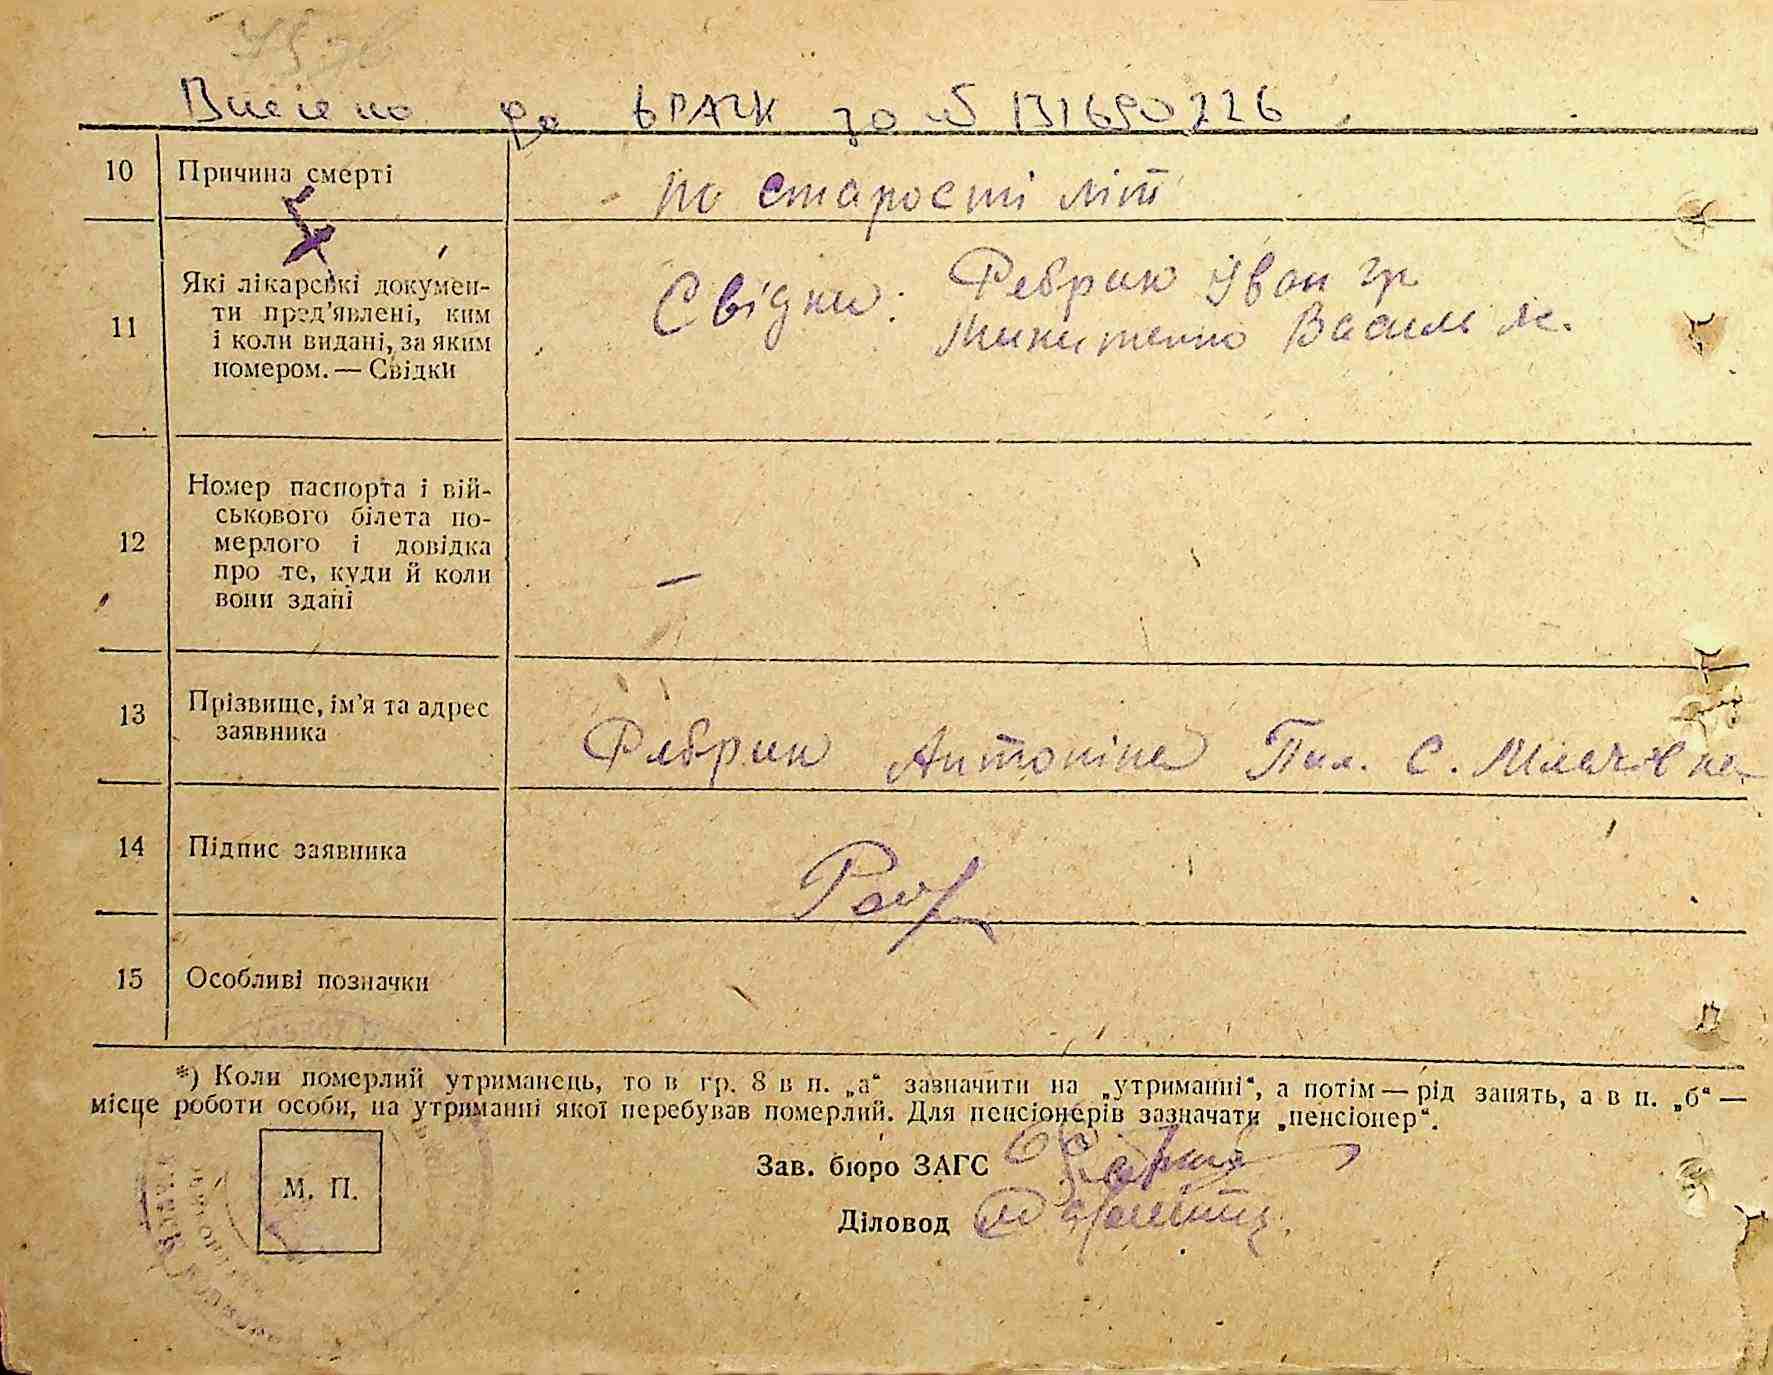 Внесено до ДРАЦС за № 131690226
10 Причина смерті по старості літ
11 Які лікарські документи пред'явлені, ким і коли видані, за яким номером. — Свідки
Які лікарські докумен-
ти пред'явлені, ким
і коли видані, за яким
номером. — Свідки
Свідки: Ребрик Іван гр
Микитенко Василь
12
Номер паспорта і вій-
ськового білета по-
мерлого і довідка
про те, куди й коли
вони здані
—
13
Прізвище, ім'я та адрес
заявника
Ребрик Антоніна Пил. с.
14 Підпис заявника
15 Особливі позначки
*) Коли померлий утриманець, то в гр. 8 в п. „а“ зазначити на „утриманні“, а потім — рід занять, а в п. „б“ —
місце роботи особи, на утриманні якої перебував померлий. Для пенсіонерів зазначати „пенсіонер“.
М. П.
Зав. бюро ЗАГС
Діловод